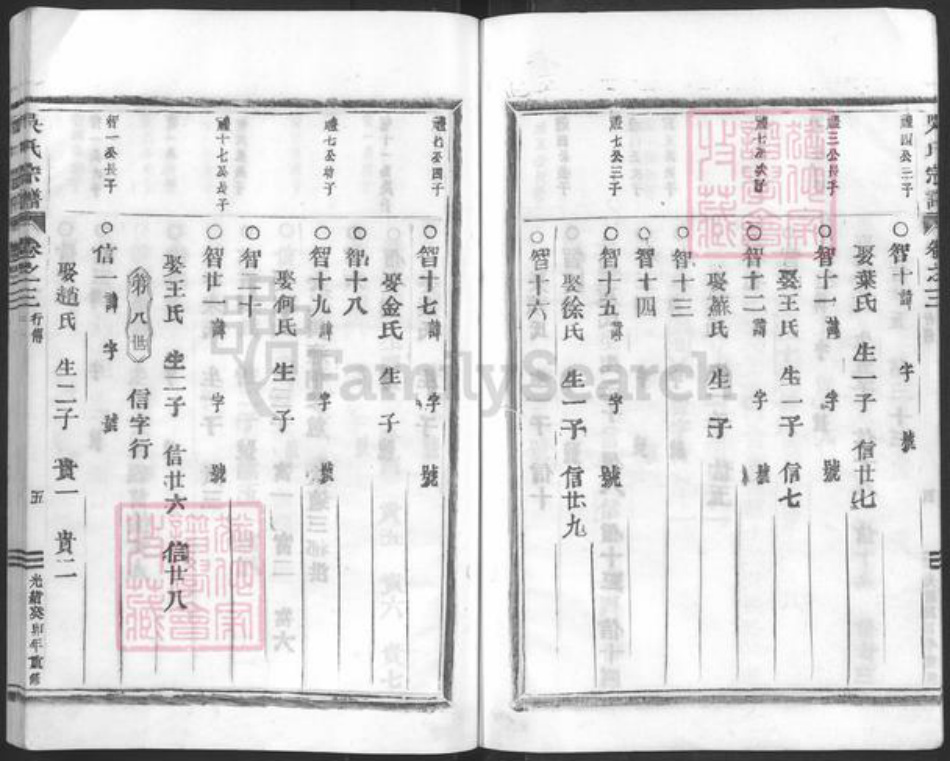 禮四公三子
○智十諱 字 號
娶葉氏 生一子 信廿七
禮三公長子
○智十一諱 字 號
娶王氏 生一子 信七
○智十二諱 字 號
娶蘇氏 生 子
○智十三
○智十四
禮七公三子
○智十五諱 字 號
娶徐氏 生一子 信廿九
○智十六
○智十七諱 字 號
娶金氏 生 子
○智十八
禮七公幼子
○智十九諱 字 號
娶何氏 生 子
○智二十
禮十七公長子
○智廿一諱 字 號
娶王氏 生二子 信廿六 信廿八
第八世 信字行
智一公長子
○信一諱 字 號
娶趙氏 生二子 貴一 貴二
吳氏宗譜 卷之三 行傳 五 光緒癸卯年重修
FamilySearch